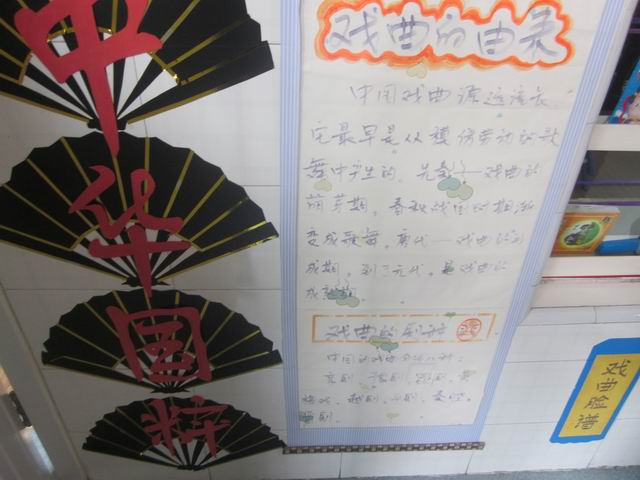 中华国粹
戏曲的由来
中国戏曲源远流长
它最早是从模仿劳动的歌
舞中产生的。先秦——戏曲的
萌芽期。春秋战国时期渐
变成歌舞。唐代——戏曲的形
成期。到了元代。是戏曲的
成熟期。
戏曲的剧种
中国的戏曲
京剧、豫剧、
越剧、
戏曲脸谱